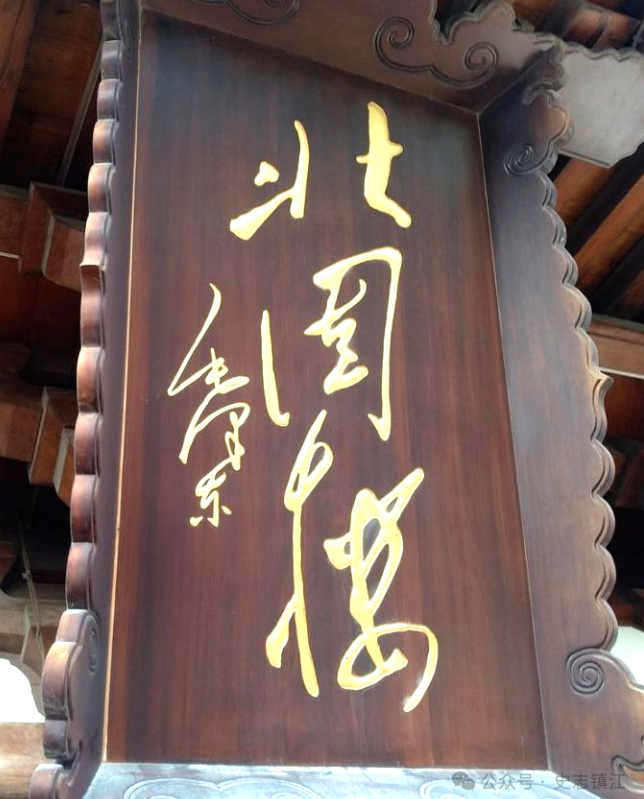 北固楼
毛泽东
公众号 · 史志镇江